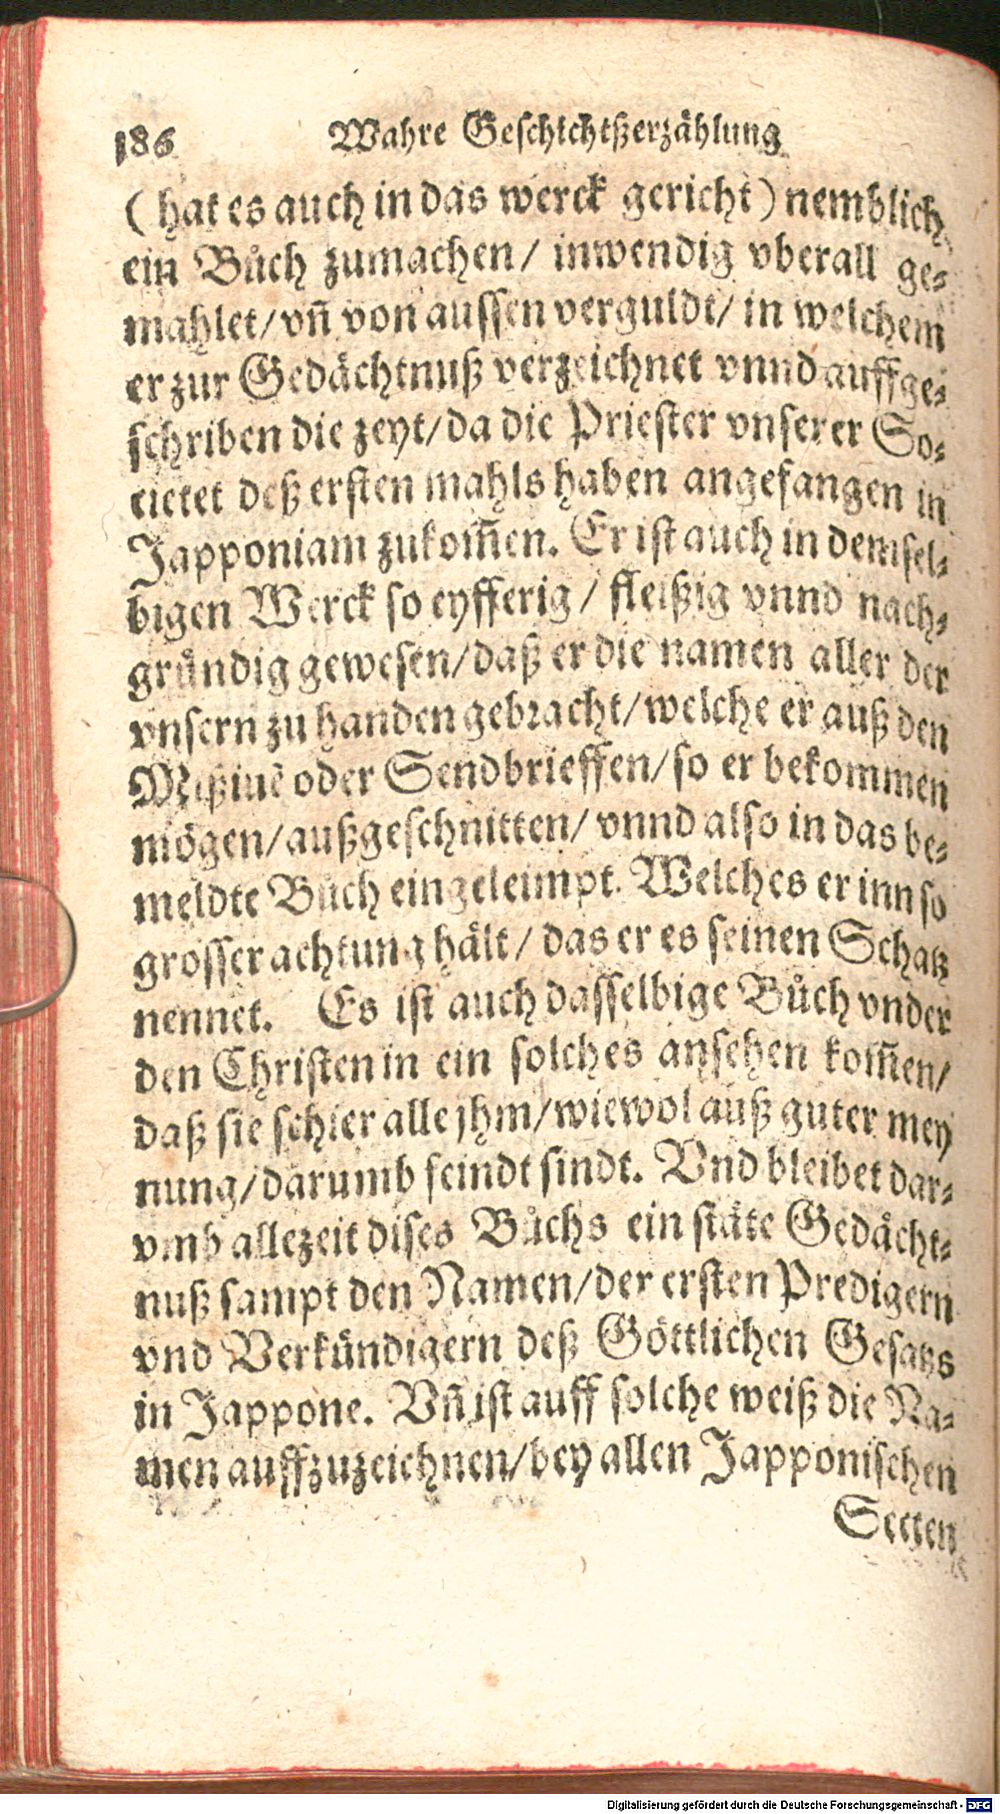 186 Wahre Geschichtßerzählung
( hat es auch in das werck gericht ) nemblich
ein Bůch zumachen/ inwendig vberall ge-
mahlet/ vñ von aussen verguldt/ in welchem
er zur Gedächtnuß verzeichnet vnnd auffge-
schriben die zeyt/ da die Priester vnserer So-
cietet deß ersten mahls haben angefangen in
Japponiam zukom̃en. Er ist auch in demsel-
bigen Werck so eyfferig/ fleißig vnnd nach-
gründig gewesen/ daß er die namen aller der
vnsern zu handen gebracht/ welche er auß den
Mißiuẽ oder Sendbrieffen/ so er bekommen
mögen/ außgeschnitten/ vnnd also in das be-
meldte Bůch eingeleimpt. Welches er inn so
grosser achtung hält/ das er es seinen Schatz
nennet. Es ist auch dasselbige Bůch vnder
den Christen in ein solches ansehen kom̃en/
daß sie schier alle jhm/ wiewol auß guter mey
nung/ darumb feindt sindt. Vnd bleibet dar-
vmb allezeit dises Bůchs ein stäte Gedächt-
nuß sampt den Namen/ der ersten Predigern
vnd Verkündigern deß Göttlichen Gesatzs
in Jappone. Vñ ist auff solche weiß die Na-
men auffzuzeichnen/ bey allen Japponischen
Secten
Digitalisierung gefördert durch die Deutsche Forschungsgemeinschaft - DFG